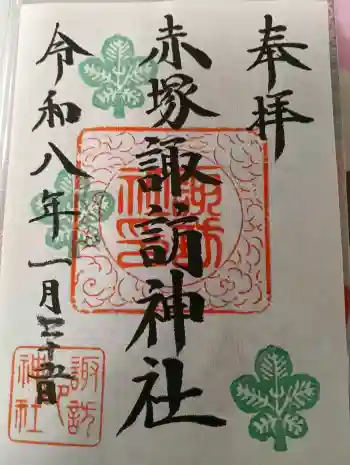 奉拝
赤塚諏訪神社
令和八年一月二十五日
諏訪
神社